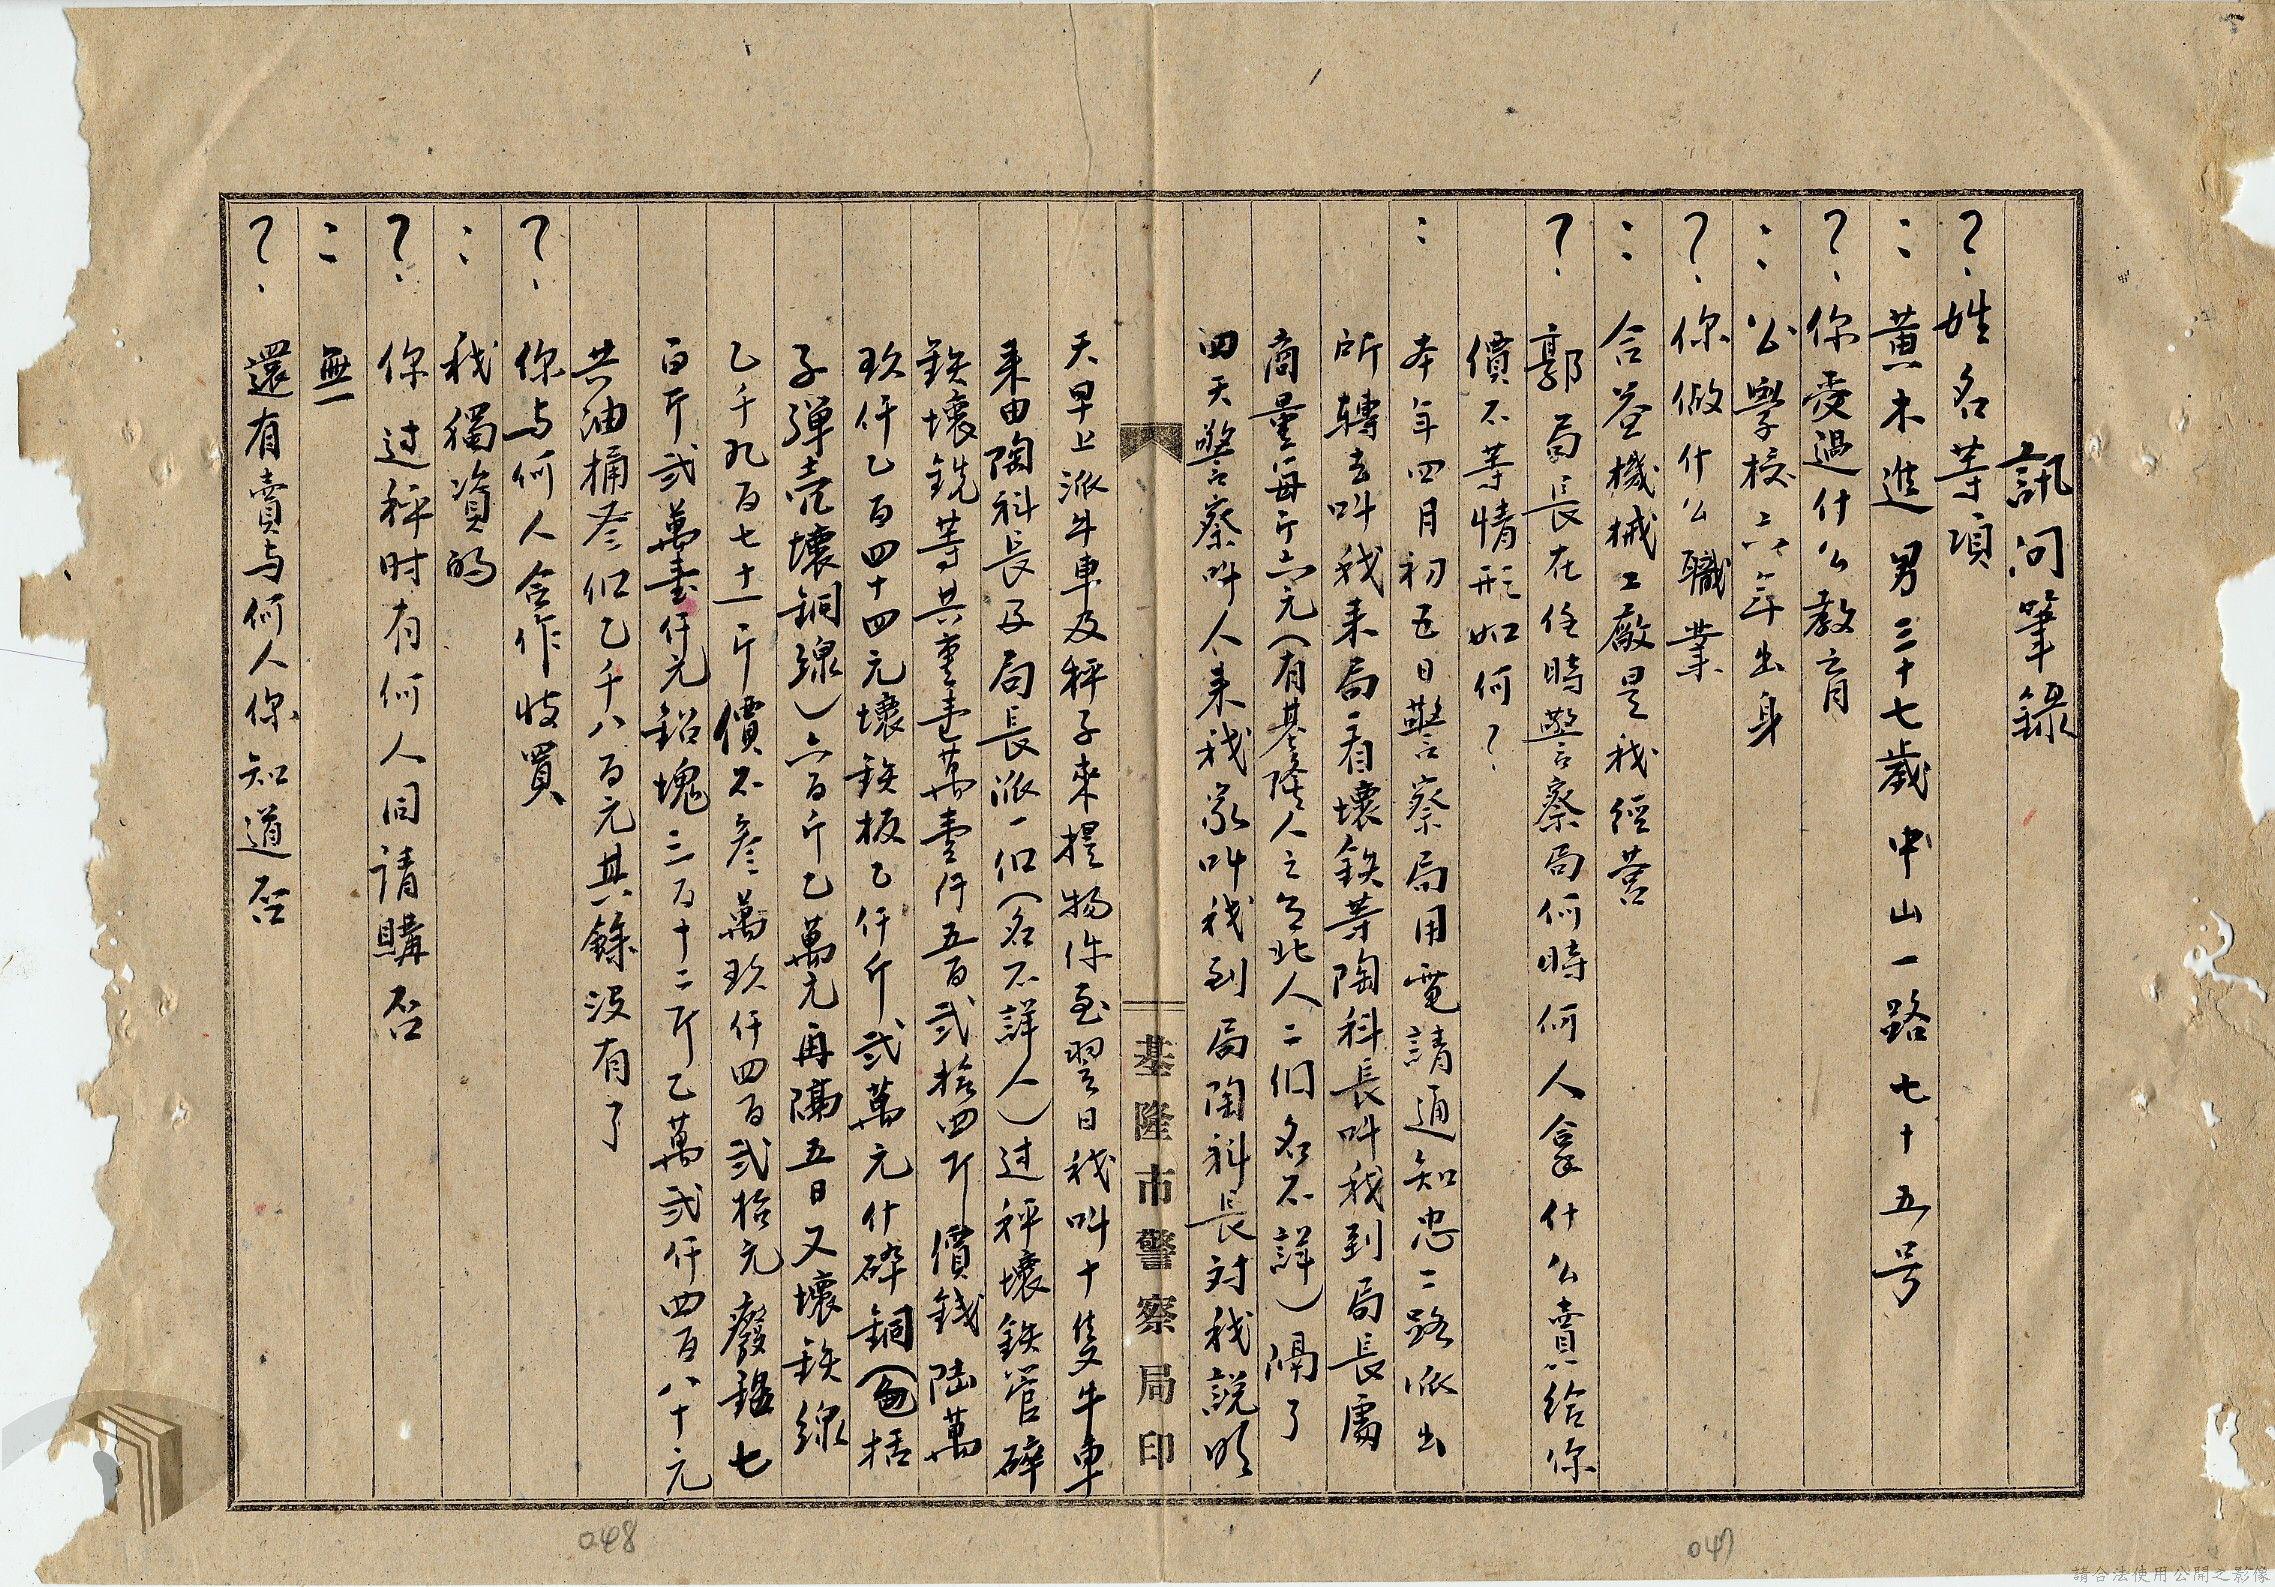 訊问筆錄
？、姓名等項
：黄木進 男 三十七歲 中山一路七十五号
？、你受過什么教育
：公學校六年出身
？、你做什么職業
：合益機械工廠是我經营
？、郭局長在任時警察局何時何人拿什么賣給你
價不等情形如何？
：本年四月初五日警察局用電請通知忠二路派出
所轉去叫我来局看壞鉄等陶科長叫我到局長處
商量每斤六元（有基隆人之台北人二個名不詳）隔了
四天警察叫人来我家叫我到局陶科長対我説明
天早上派牛車及秤子來提物件至翌日我叫十隻牛車
来由陶科長及局長派一個（名不詳人）过秤壞鉄管碎
鉄壞銑等共重壹萬壹仟五百貳拾四斤價錢陆萬
玖仟乙百四十四元壞鉄板乙仟斤貳萬元什碎銅（包括
子彈壳壞銅線）六百斤乙萬元再隔五日又壞鉄線
乙千九百七十一斤價不叁萬玖仟四百貳拾元廢鋁七
百斤貳萬壹仟元鉛塊三百十二斤乙萬貳仟四百八十元
共油桶叁個乙千八百元其餘没有了
？、你与何人合作收買
：我獨資的
？、你过秤时有何人同請購否
：無
？、還有賣与何人你知道否
基隆市警察局印
047
048
請合法使用公開之影像